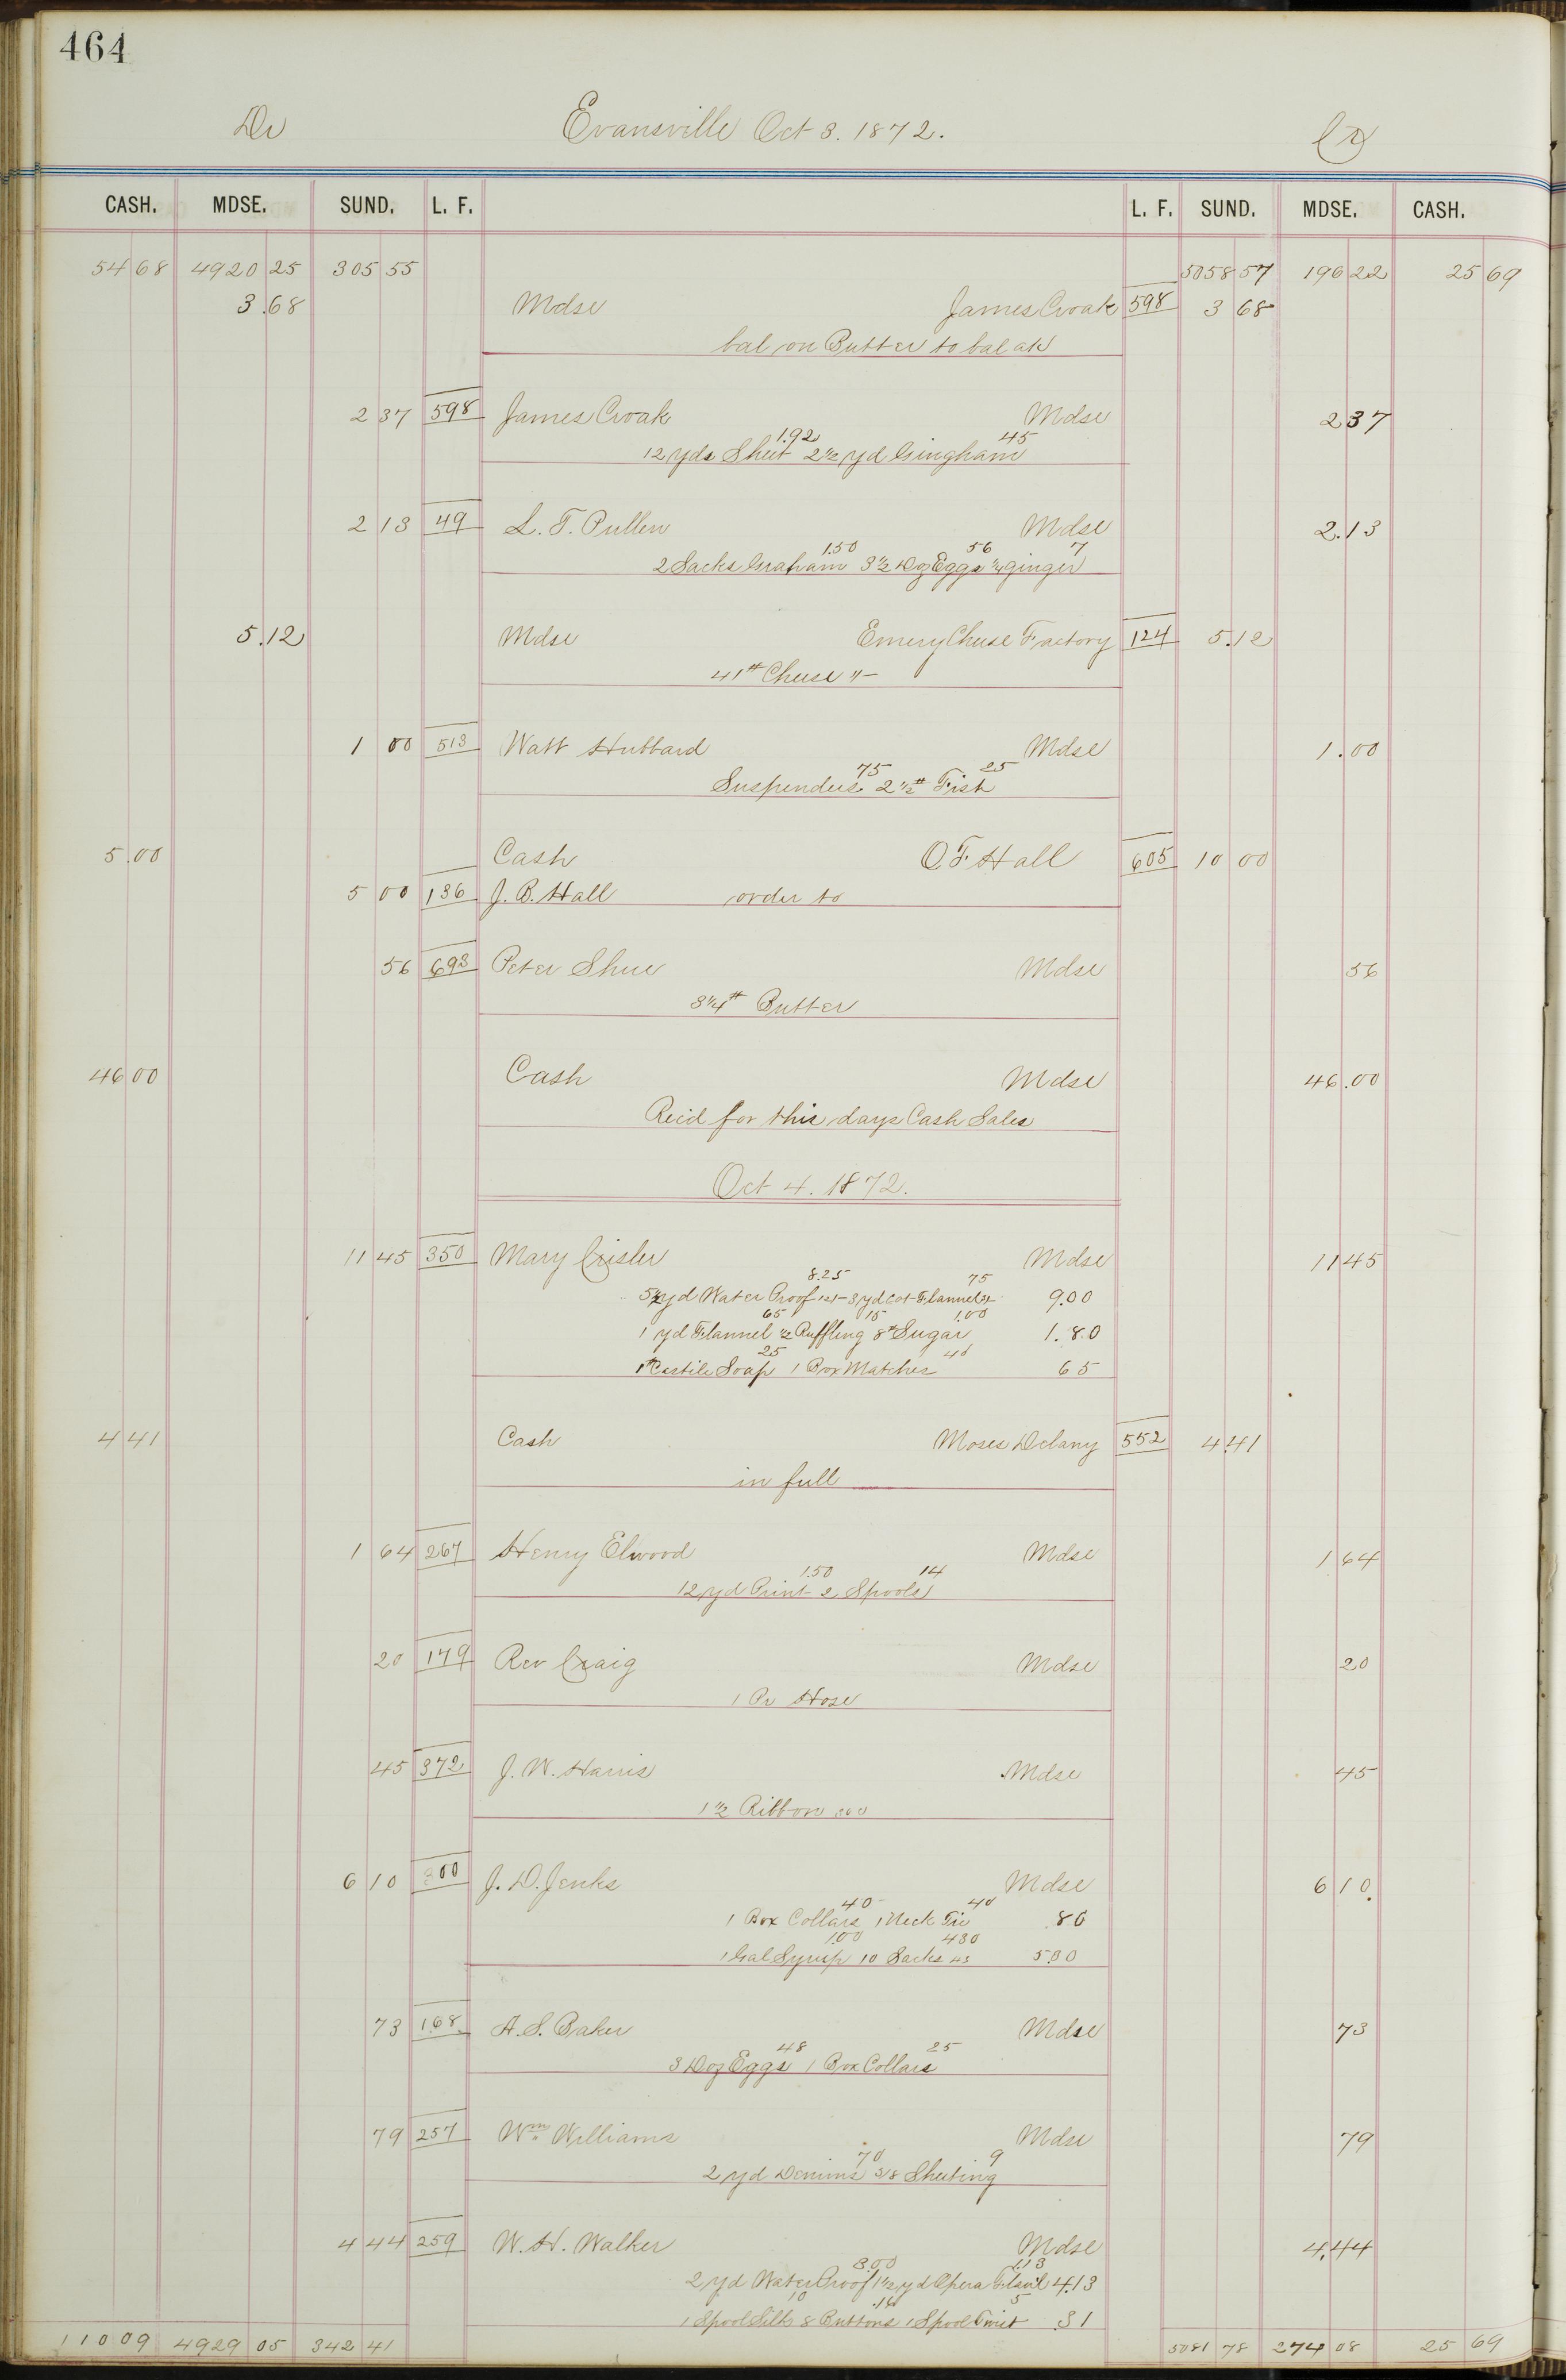 464
Dr Evansville Oct 3. 1872. Cr
CASH. MDSE. SUND. L. F. L. F. SUND. MDSE. CASH.
54 68 4920 25 305 55 5058 57 196 22 25 69
3.68 Mdse James Croak 598 3 68
bal on Butter to bal a/c
2 37 598 James Croak Mdse 2 37
1.92 45
12 yds Sheet 2 1/2 yd Gingham
2 13 49 L. T. Pullen Mdse 2.13
1.50 56 7
2 Sacks Graham 3 1/2 Doz Eggs 1/4 ginger
5.12 Mdse Emery Cheese Factory 124 5.12
41# Cheese
1 00 513 Watt Hubbard Mdse 1.00
75 25
Suspenders 2 1/2# Fish
5.00 Cash O F Hall 605 10 00
5 00 136 J. B. Hall order to
56 693 Peter Shue Mdse 56
3 1/4# Butter
46 00 Cash Mdse 46.00
Recd for this days Cash Sales
Oct 4. 1872.
11 45 350 Mary Crisler Mdse 11 45
8.25 75
yd Water Proof 3 yd Cot Flannel 9.00
65 15 1.00
1 yd Flannel 1/2 Ruffling 8# Sugar 1.80
25 40
1# Castile Soap 1 Box Matches 65
4 41 Cash Moses Delany 552 4.41
in full
1 64 267 Henry Elwood Mdse 1 64
1.50 14
12 yd Print 2 Spools
20 179 Rev Craig Mdse 20
1 Pr Hose
45 372 J. W. Harris Mdse 45
1 1/2 Ribbon
6 10 300 J. D. Jenks Mdse 6 10
40 40
1 Box Collars 1 Neck Tie 80
1.00 430
1 Gal Syrup 10 Sacks 43 5.30
73 168 A. S. Baker Mdse 73
48 25
3 Doz Eggs 1 Box Collars
79 257 Wm Williams Mdse 79
70 9
2 yd Denims 3/8 Sheeting
4 44 259 W. H. Walker Mdse 4.44
3.00 1.13
2 yd Water Proof 1 1/2 yd Opera Flan'l 4.13
10 .16 5
1 Spool Silk 8 Buttons 1 Spool Twist .31
110 09 4929 05 342 41 5081 78 274 08 25 69